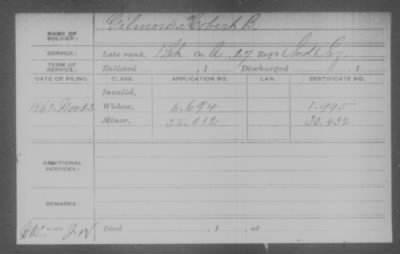 NAME OF SOLDIER: Gilmore, Robert B.
SERVICE: Late rank, Co. A, 27 Reg't Ind.
TERM OF SERVICE: Enlisted , 1 Discharged , 1
DATE OF FILING. CLASS. APPLICATION NO. LAW. CERTIFICATE NO.
Invalid,
1862 Nov 22 Widow, 6.694 1.995
Minor, 30.432
ADDITIONAL SERVICES:
REMARKS:
Died , 1 , at